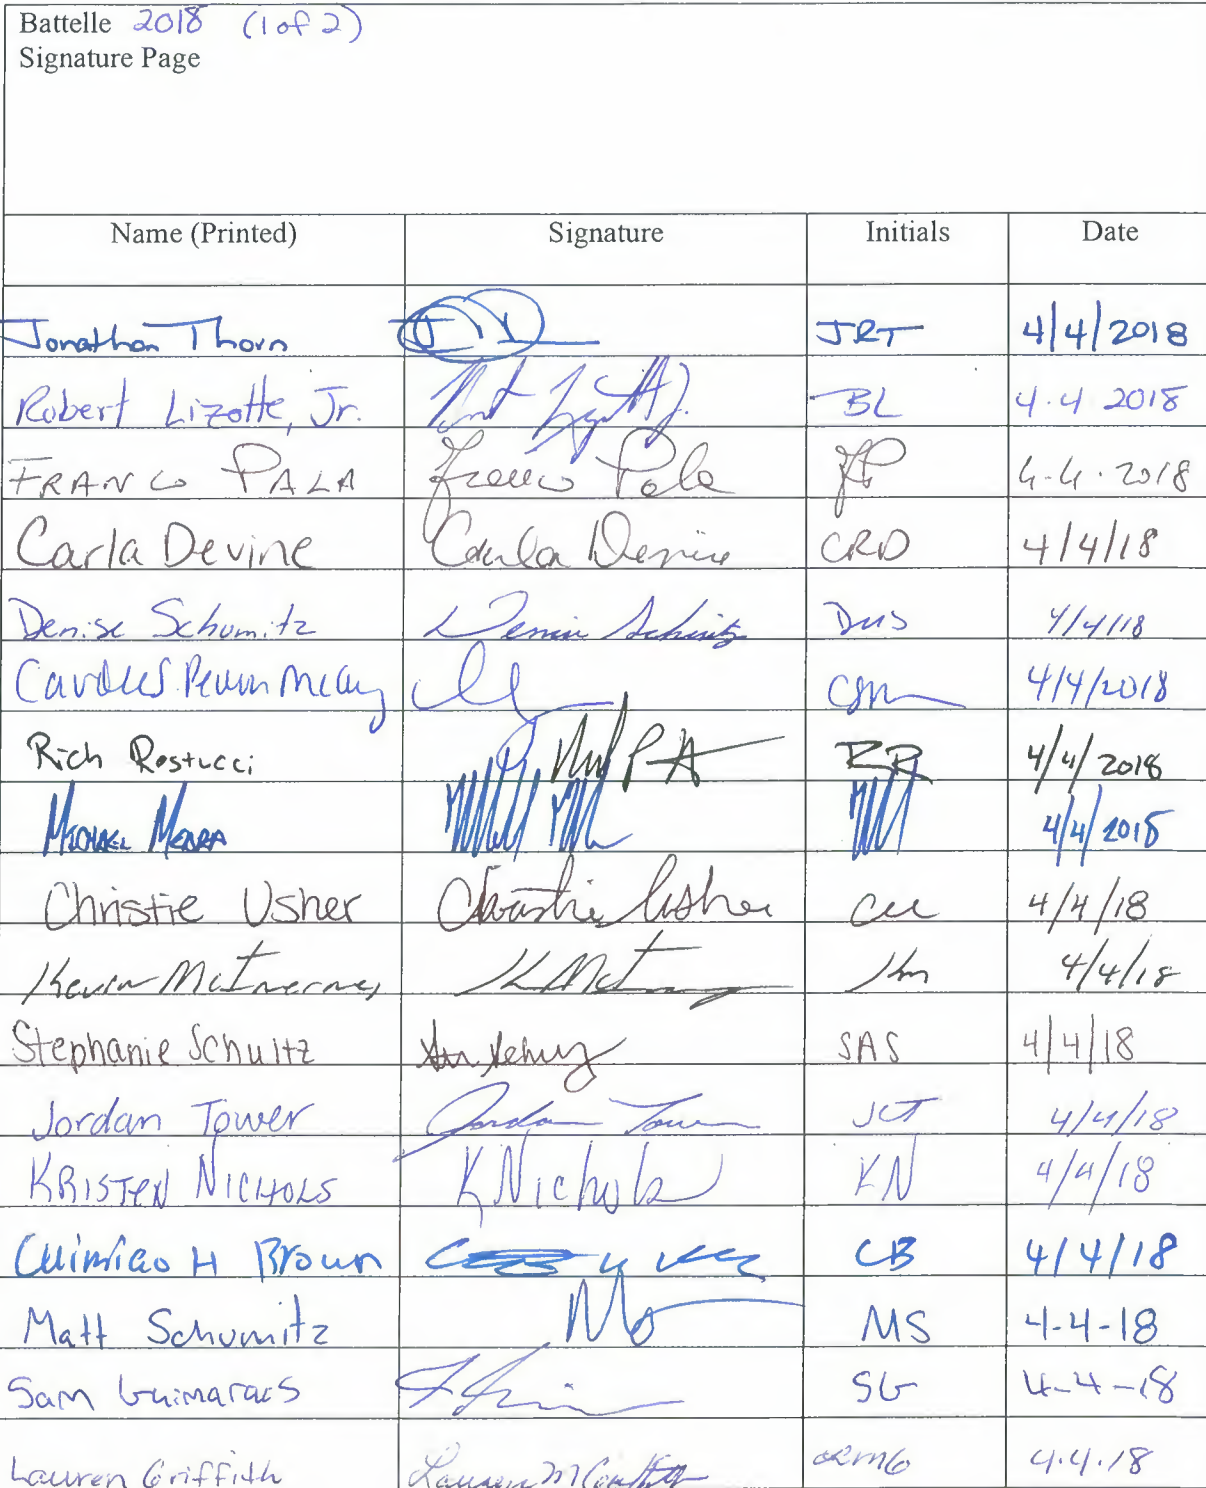 Battelle 2018 (1 of 2)
Signature Page
Name (Printed) Signature Initials Date
Jonathan Thorn JRT 4/4/2018
Robert Lizotte, Jr. BL 4.4 2018
FRANCO PALA Franco Pala FP 4.4.2018
Carla Devine Carla Devine CRD 4/4/18
Denise Schumitz Denise Schumitz DMS 4/4/18
4/4/2018
Rich Restucci RR 4/4/2018
MICHAEL MEARA 4/4/2018
Christie Usher Christie Usher CU 4/4/18
Kevin McInerney K McI KM 4/4/18
Stephanie Schultz SAS 4/4/18
Jordan Tower Jordan Tower JCT 4/4/18
KRISTEN NICHOLS K Nichols KN 4/4/18
H Brown CB 4/4/18
Matt Schumitz MS 4-4-18
Sam Guimaraes SG 4-4-18
Lauren Griffith Lauren M Griffith LRMG 4.4.18